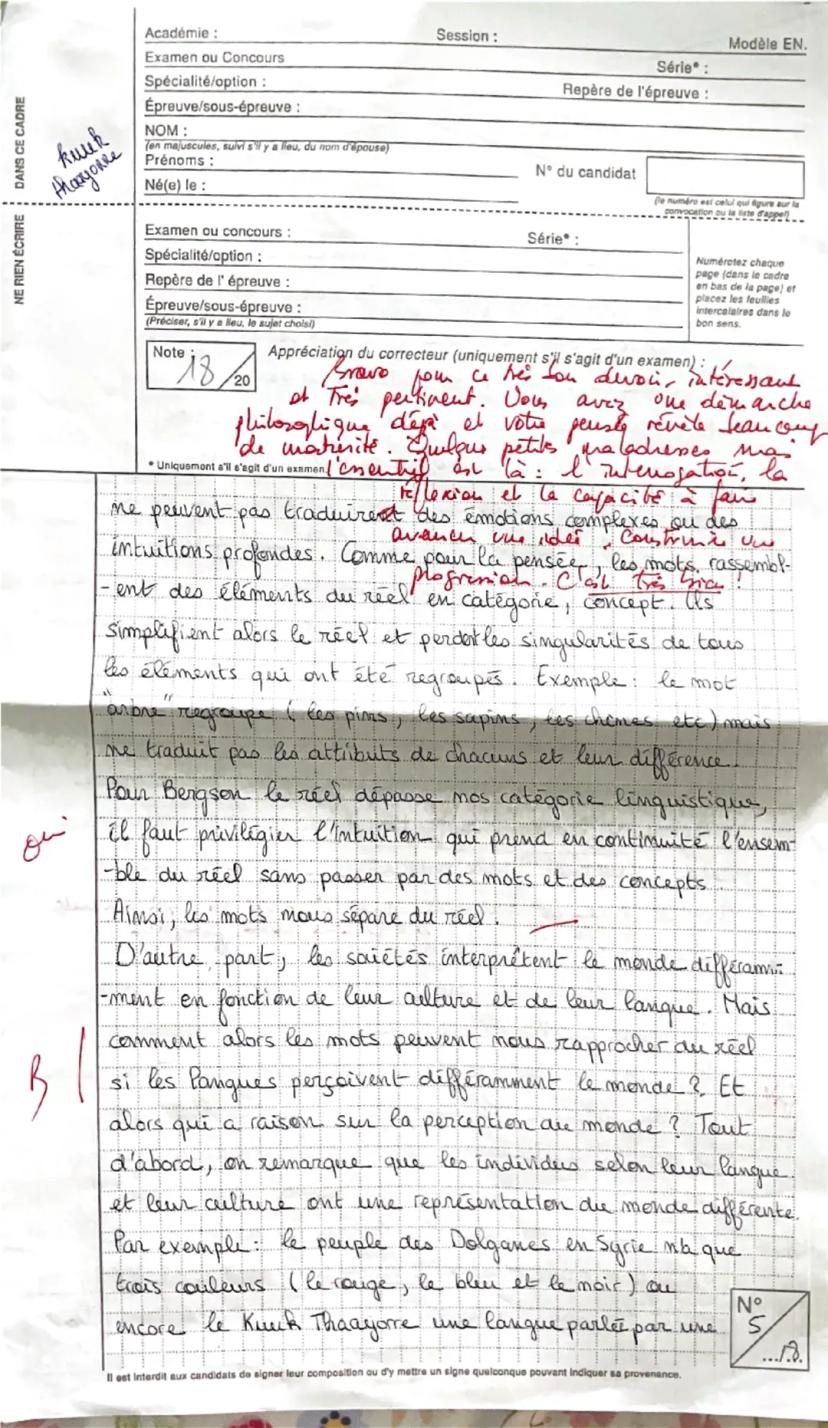 Académie :
Session :
Modèle EN.
Examen ou Concours
Série* :
Spécialité/option :
Repère de l'épreuve :
Épreuve/sous-épreuve :
NOM :
(en majuscules, suivi s'il y a lieu, du nom d'épouse)
Prénoms :
N° du candidat
Né(e) le :
(le numéro est celui qui figure sur la
convocation ou la liste d'appel)
DANS CE CADRE
Kuuk
thaayorre
NE RIEN ÉCRIRE
Examen ou concours :
Série* :
Spécialité/option :
Repère de l' épreuve :
Épreuve/sous-épreuve :
(Préciser, s'il y a lieu, le sujet choisi)
Numérotez chaque
page (dans le cadre
en bas de la page) et
placez les feuilles
intercalaires dans le
bon sens.
Note :
18
/20
Appréciation du correcteur (uniquement s'il s'agit d'un examen) :
Bravo pour ce très bon devoir, intéressant
et très pertinent. Vous avez une démarche
philosophique déjà et votre pensée révèle beaucoup
de maturité. Quelques petits maladresses mais
* Uniquement s'il s'agit d'un examen.
l'essentiel est là : l'interrogation, la
réflexion et la capacité à faire
avancer une idée. Construire une
progression. C'est très bien !
ne peuvent pas traduirent des émotions complexes ou des
intuitions profondes. Comme pour la pensée, les mots rassembl-
-ent des éléments du réel en catégorie, concept. Ils
simplifient alors le réel et perdent les singularités de tous
les éléments qui ont été regroupés. Exemple : le mot
"arbre" regroupe (les pins, les sapins, les chênes etc) mais
ne traduit pas les attributs de chacuns et leur différence.
Pour Bergson le réel dépasse nos catégorie linguistique,
oui
il faut privilégier l'intuition qui prend en continuité l'ensem-
-ble du réel sans passer par des mots et des concepts.
Ainsi, les mots nous sépare du réel.
D'autre part, les sociétés interprêtent le monde différam-
-ment en fonction de leur culture et de leur langue. Mais
comment alors les mots peuvent nous rapprocher du réel
B
si les langues perçoivent différamment le monde ? Et
alors qui a raison sur la perception du monde ? Tout
d'abord, on remarque que les individus selon leur langue
et leur culture ont une représentation du monde différente.
Par exemple : le peuple des Dolganes en Syrie n'a que
trois couleurs (le rouge, le bleu et le noir) ou
encore le Kuuk Thaayorre une langue parlée par une
N°
5
Il est interdit aux candidats de signer leur composition ou d'y mettre un signe quelconque pouvant indiquer sa provenance.